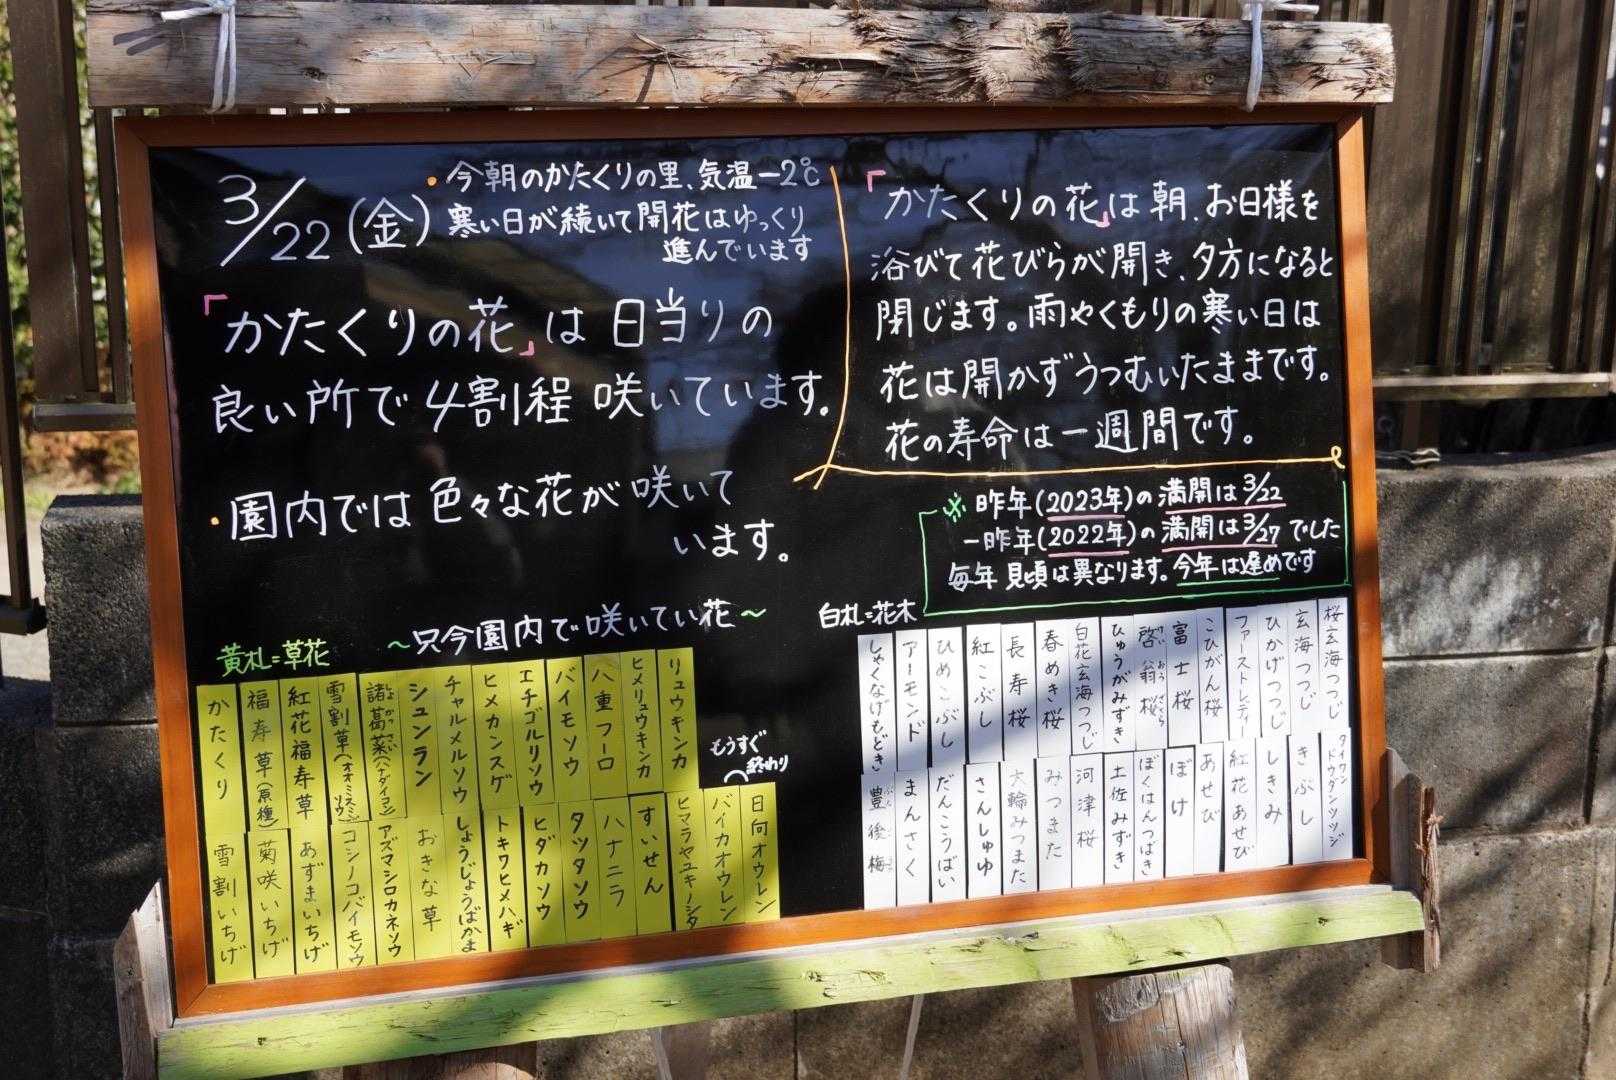 3/22(金)
・今朝のかたくりの里、気温-2℃
寒い日が続いて開花はゆっくり
進んでいます
「かたくりの花」は日当りの
良い所で4割程咲いています。
・園内では色々な花が咲いて
います。
「かたくりの花」は朝、お日様を
浴びて花びらが開き、夕方になると
閉じます。雨やくもりの寒い日は
花は開かずうつむいたままです。
花の寿命は一週間です。
※昨年(2023年)の満開は3/22
一昨年(2022年)の満開は3/27でした
毎年見頃は異なります。今年は遅めです
〜只今園内で咲いてい花〜
黄札=草花
かたくり
福寿草(原種)
紅花福寿草
雪割草(オオミスミソウ)
諸葛菜(ハナダイコン)
シュンラン
チャルメルソウ
ヒメカンスゲ
エチゴルリソウ
バイモソウ
八重フーロ
ヒメリュウキンカ
リュウキンカ
もうすぐ
終わり
雪割いちげ
菊咲いちげ
あずまいちげ
コシノコバイモソウ
アズマシロカネソウ
おきな草
しょうじょうばかま
トキワヒメハギ
ヒダカソウ
タツタソウ
ハナニラ
すいせん
ヒマラヤユキノシタ
バイカオウレン
日向オウレン
白札=花木
しゃくなげもどき
アーモンド
ひめこぶし
紅こぶし
長寿桜
春めき桜
白花玄海つつじ
ひゅうがみずき
啓翁桜
富士桜
こひがん桜
ファーストレディー
ひかげつつじ
玄海つつじ
桜玄海つつじ
豊後梅
まんさく
だんこうばい
さんしゅゆ
大輪みつまた
みつまた
河津桜
土佐みずき
ぼくはんつばき
ぼけ
あせび
紅花あせび
しきみ
きぶし
タイワンドウダンツツジ